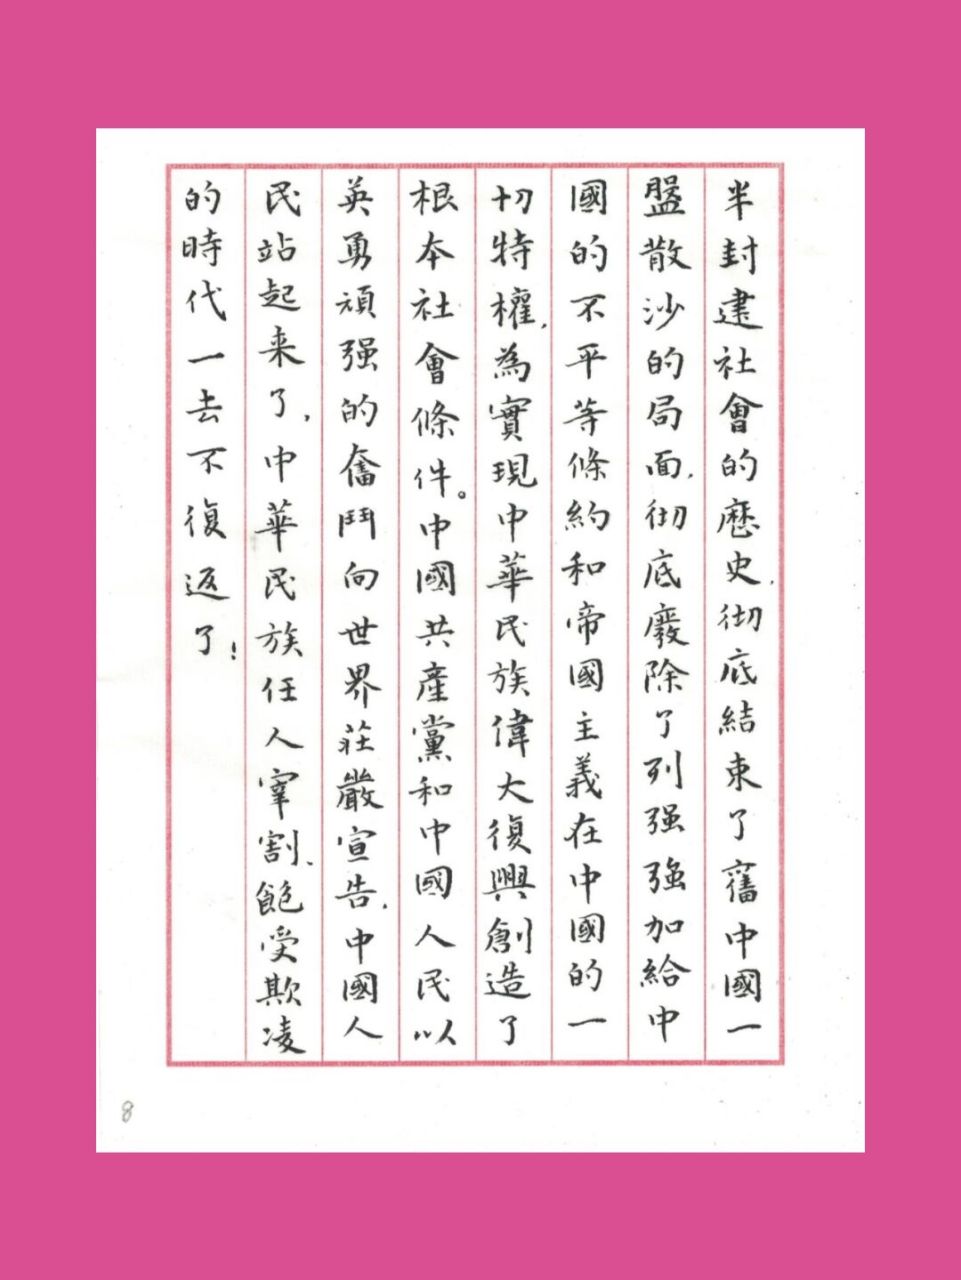 半封建社會的歷史，徹底結束了舊中國一
盤散沙的局面，徹底廢除了列强强加給中
國的不平等條約和帝國主義在中國的一
切特權，為實現中華民族偉大復興創造了
根本社會條件。中國共產黨和中國人民以
英勇頑强的奮鬥向世界莊嚴宣告，中國人
民站起来了，中華民族任人宰割、飽受欺凌
的時代一去不復返了！
8